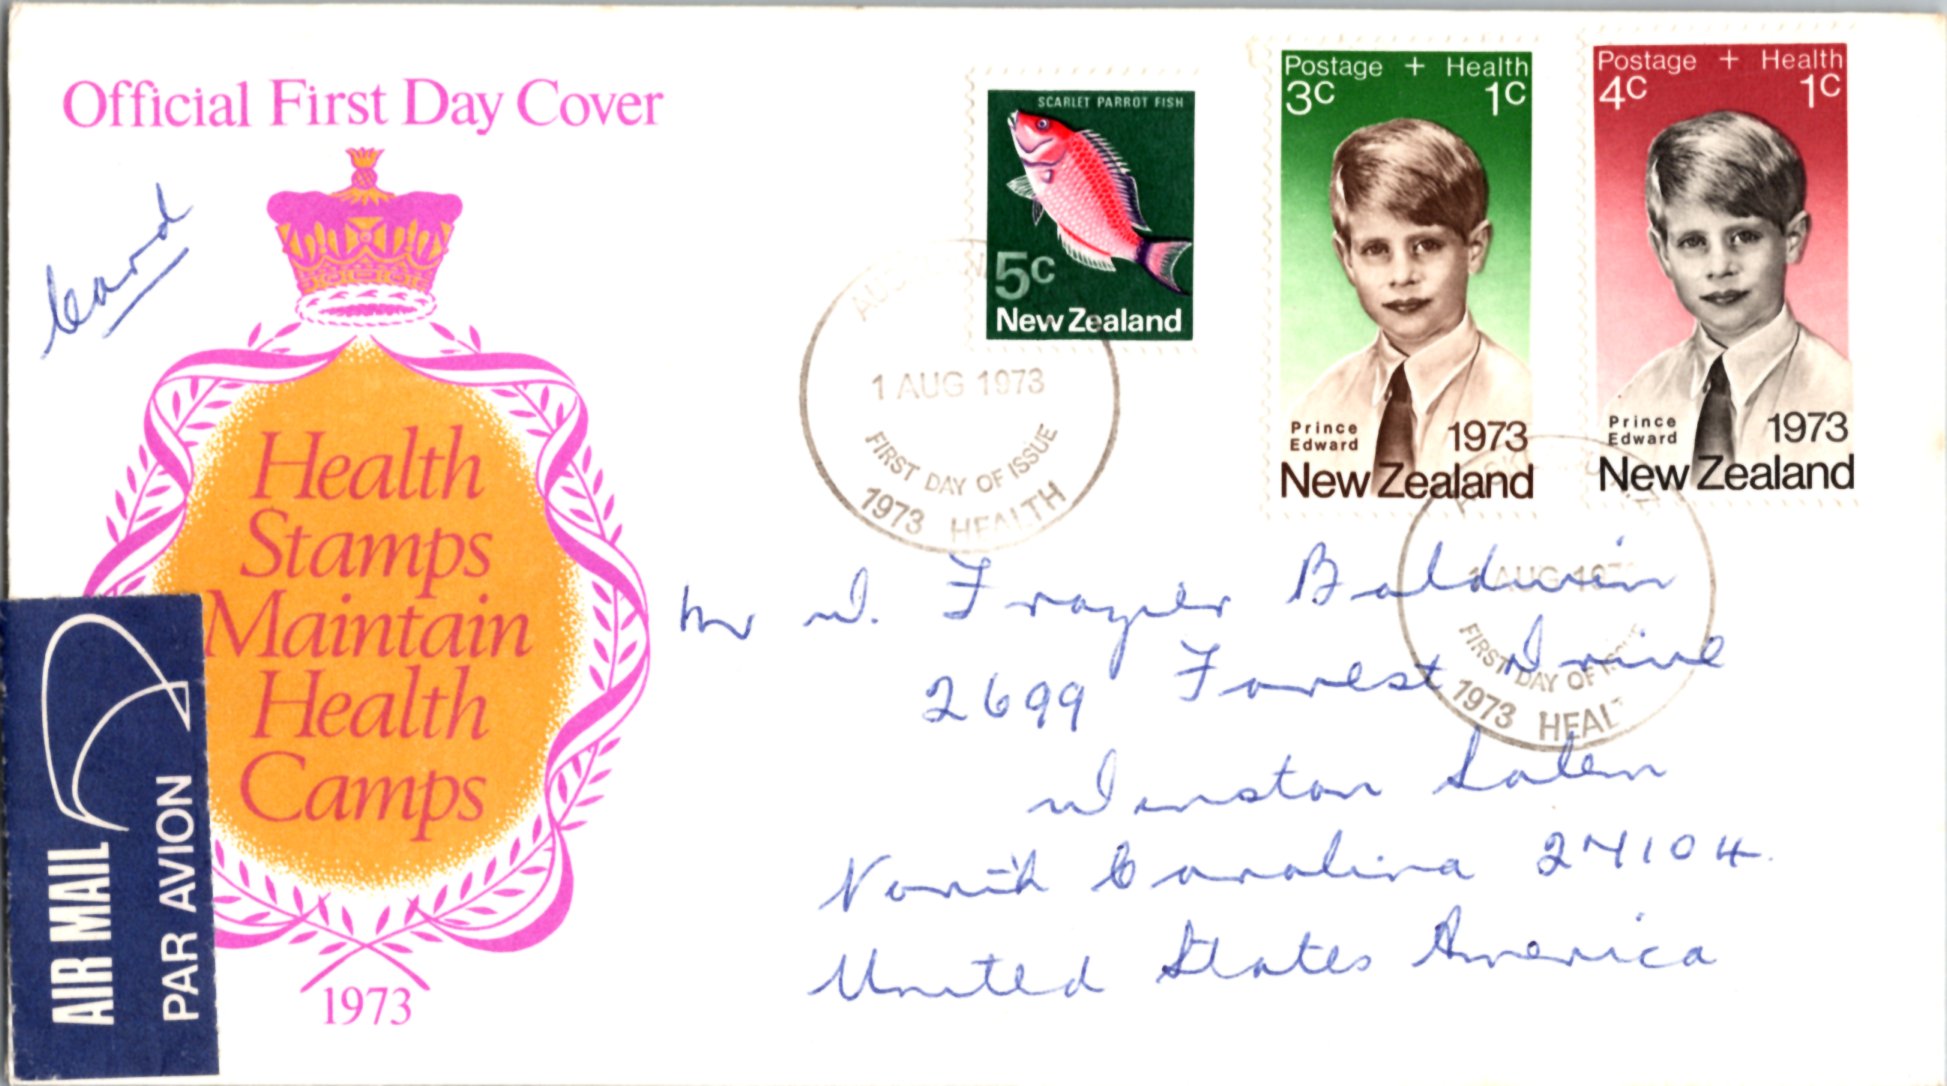 Official First Day Cover
Card
Health
Stamps
Maintain
Health
Camps
1973
AIR MAIL
PAR AVION
SCARLET PARROT FISH
5c
New Zealand
Postage + Health
3c 1c
Prince
Edward
1973
New Zealand
Postage + Health
4c 1c
Prince
Edward
1973
New Zealand
1 AUG 1973
FIRST DAY OF ISSUE
1973 HEALTH
1 AUG 197
FIRST DAY OF ISSU
1973 HEALT
Mr W. Frazier Baldwin
2699 Forest Drive
Winston Salem
North Carolina 27104.
United States America